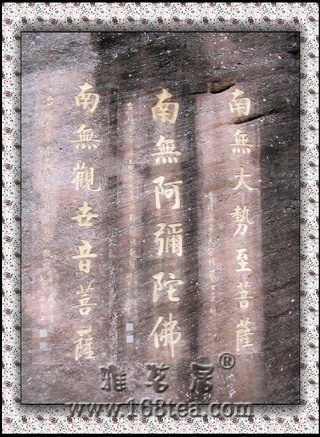 南無大勢至菩薩
南無阿彌陀佛
南無觀世音菩薩
雅茗居®
www.168tea.com